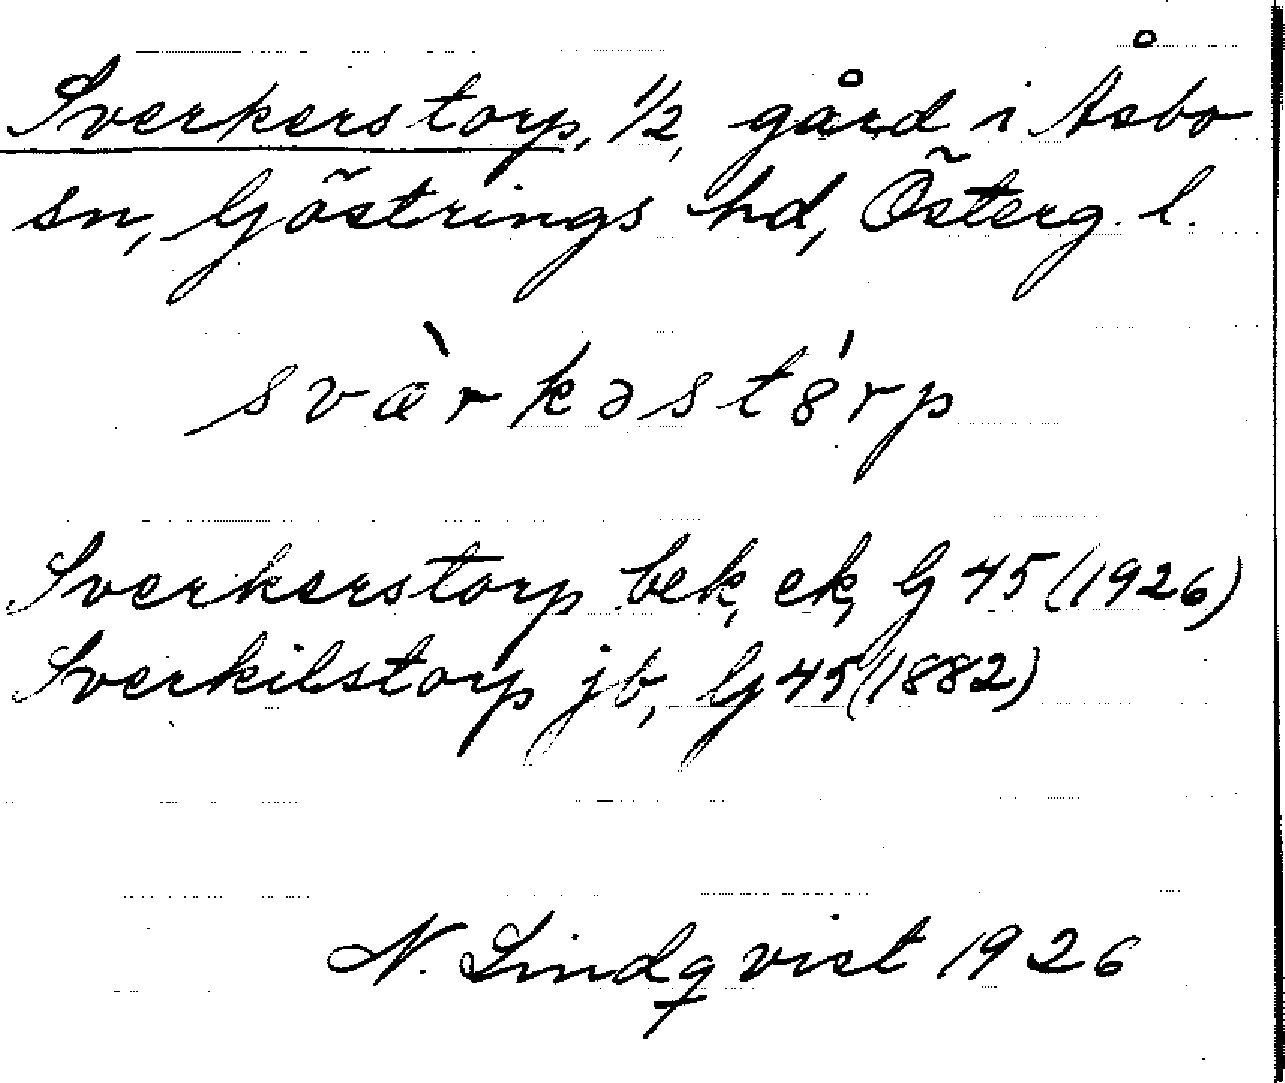 Sverkerstorp, 1/2, gård i Åsbo
sn, Göstrings hd, Österg. l.
svæ̀rkəstȣ́rp
Sverkerstorp bek, ek, G 45 (1926)
Sverkilstorp jb, G 45 (1882)
N. Lindqvist 1926